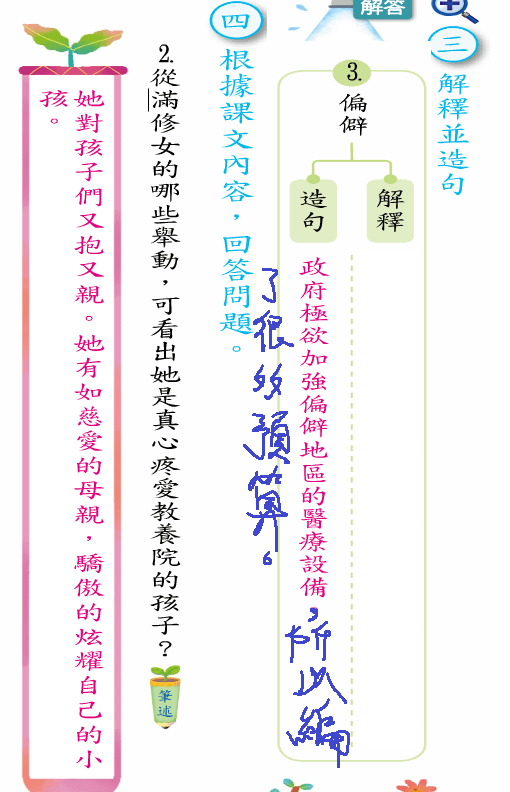 解答
三 解釋並造句
3.
偏僻
解釋
造句
政府極欲加強偏僻地區的醫療設備，所以編
了很多預算。
四 根據課文內容，回答問題。
2.從滿修女的哪些舉動，可看出她是真心疼愛教養院的孩子？
筆述
她對孩子們又抱又親。她有如慈愛的母親，驕傲的炫耀自己的小
孩。